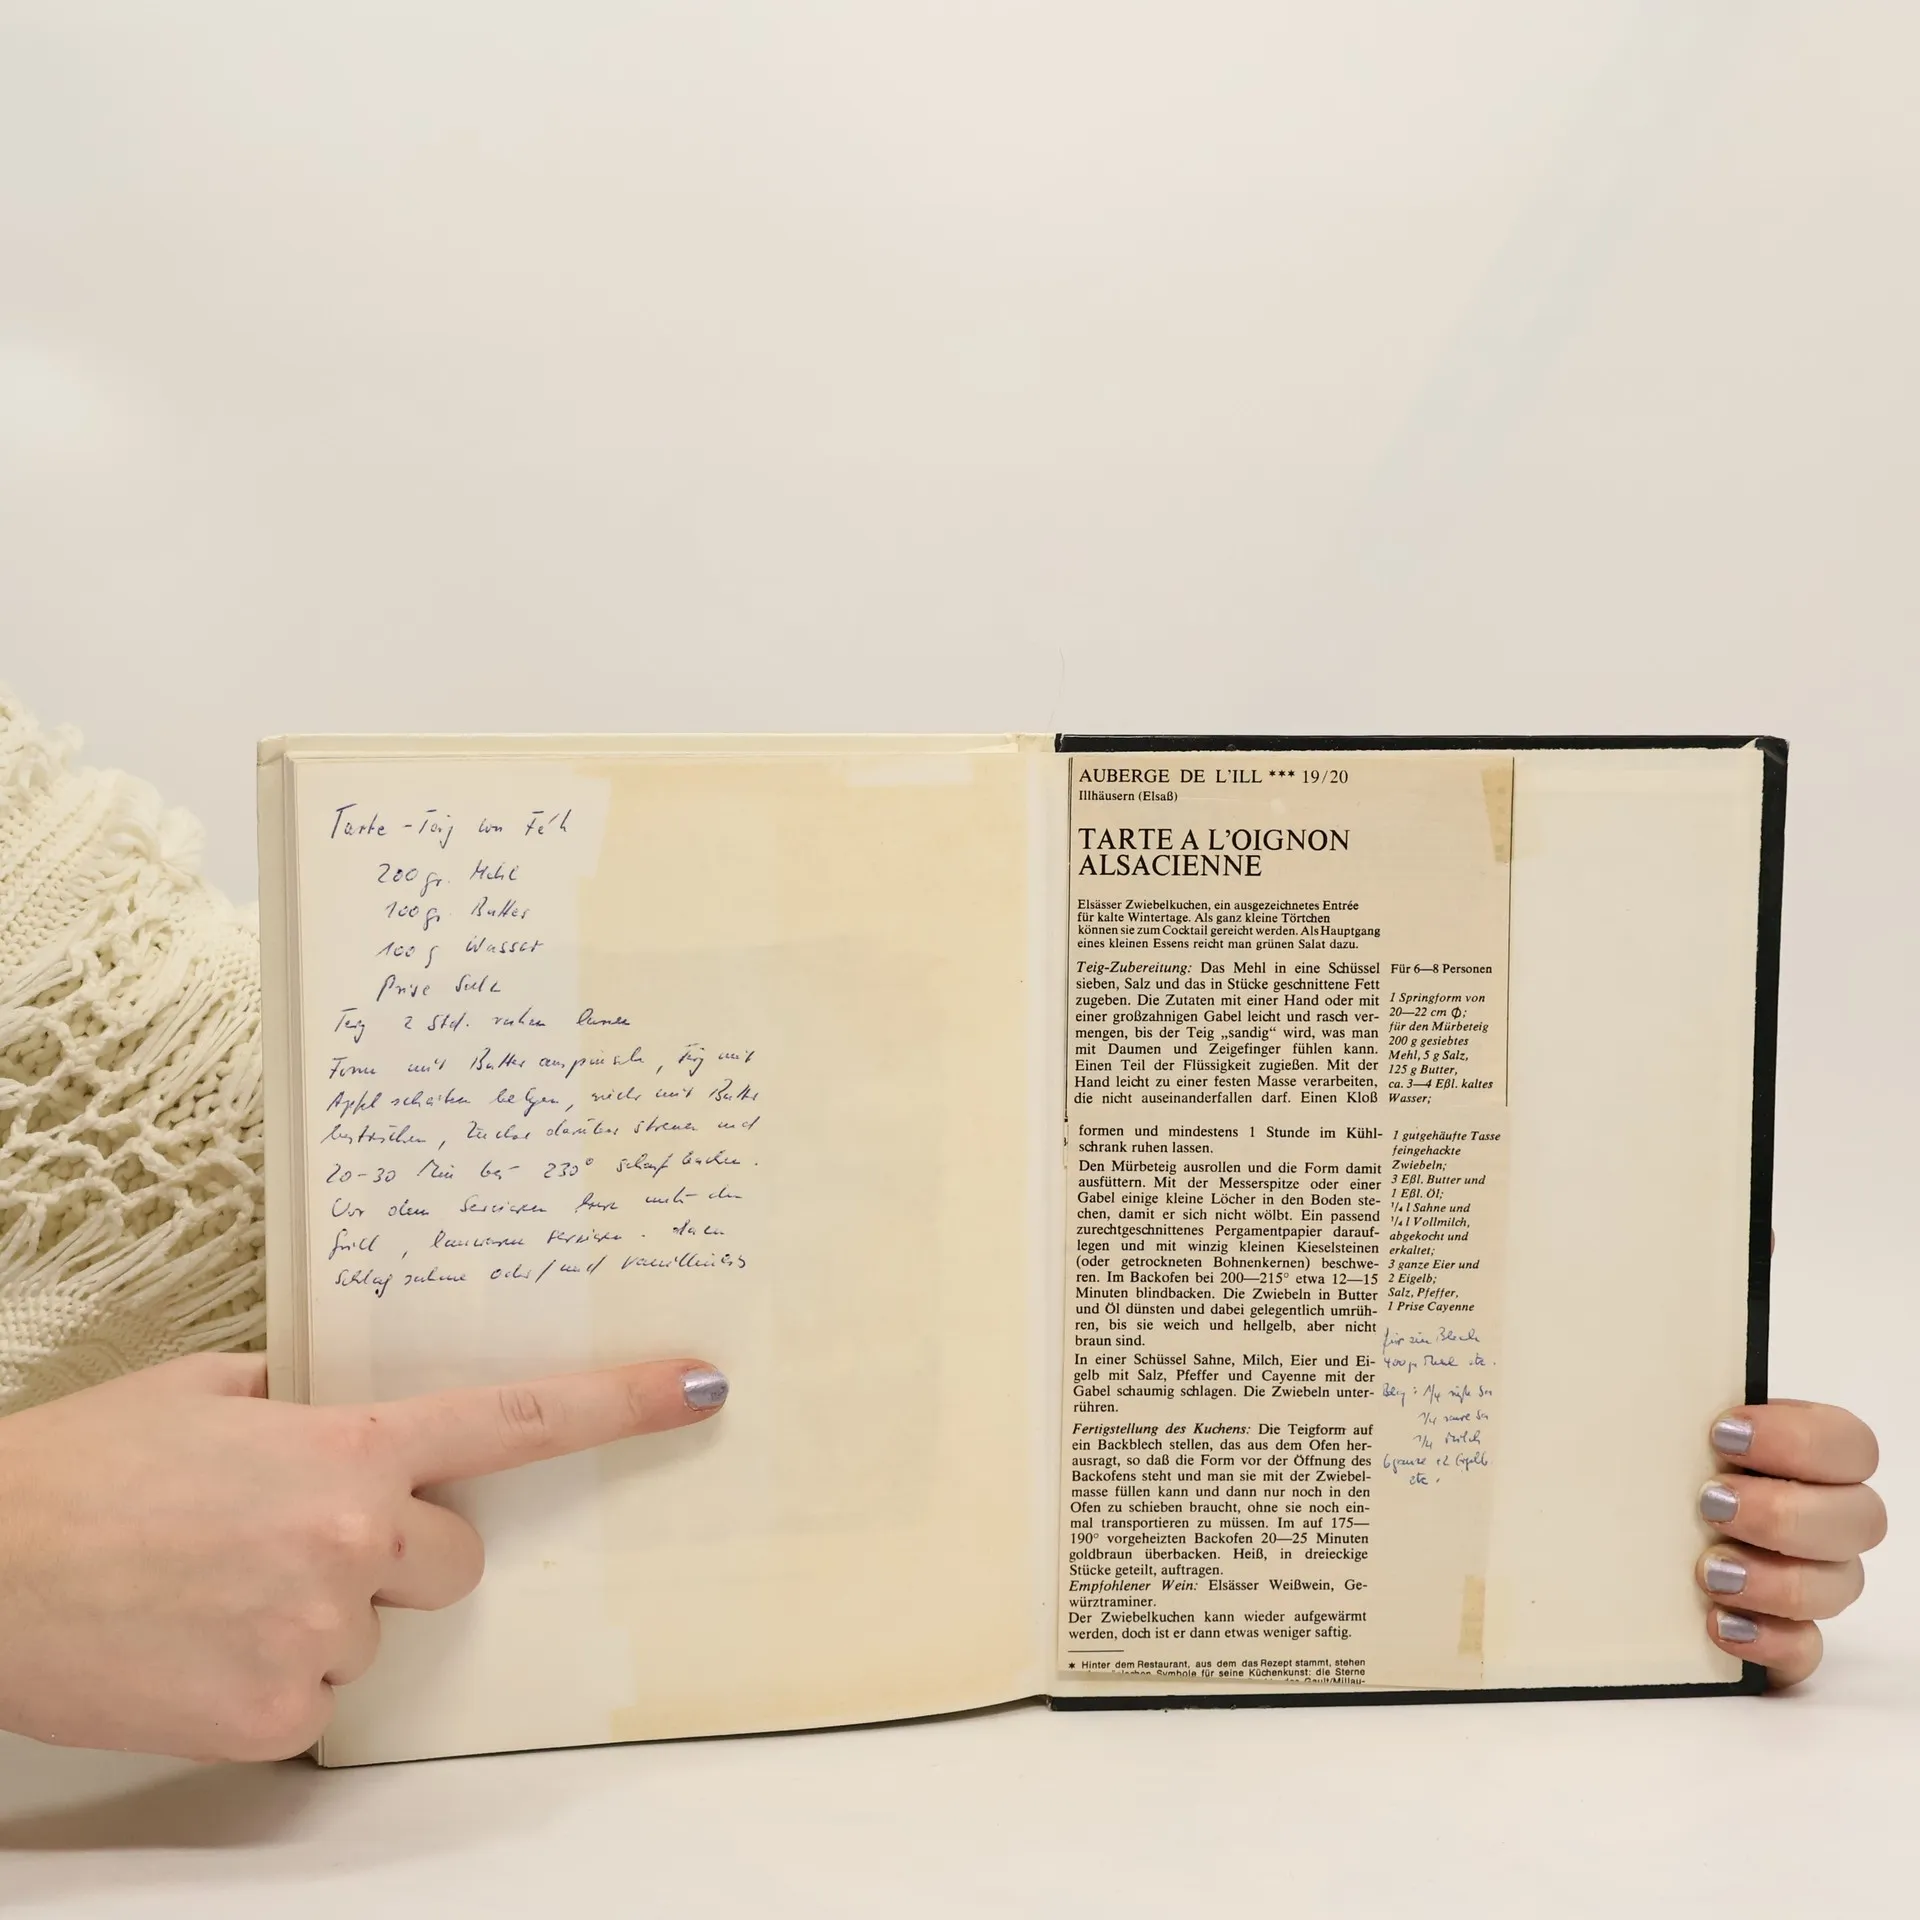 Tarte - Teig von Féh
200 gr. Mehl
100 gr. Butter
100 g Wasser
Prise Salz
Teig 2 Std. ruhen lassen
Form mit Butter auspinseln, Teig mit
Apfelscheiben belegen, mit Butter
bestreichen, Zucker darüber streuen und
20-30 Min bei 230° scharf backen.
Vor dem Servieren kurz unter den
Grill, lauwarm servieren. dazu
Schlagsahne oder/und Vanilleeis
AUBERGE DE L'ILL *** 19/20
Illhäusern (Elsaß)
TARTE A L'OIGNON
ALSACIENNE
Elsässer Zwiebelkuchen, ein ausgezeichnetes Entrée
für kalte Wintertage. Als ganz kleine Törtchen
können sie zum Cocktail gereicht werden. Als Hauptgang
eines kleinen Essens reicht man grünen Salat dazu.
Teig-Zubereitung: Das Mehl in eine Schüssel
sieben, Salz und das in Stücke geschnittene Fett
zugeben. Die Zutaten mit einer Hand oder mit
einer großzahnigen Gabel leicht und rasch ver-
mengen, bis der Teig „sandig“ wird, was man
mit Daumen und Zeigefinger fühlen kann.
Einen Teil der Flüssigkeit zugießen. Mit der
Hand leicht zu einer festen Masse verarbeiten,
die nicht auseinanderfallen darf. Einen Kloß
formen und mindestens 1 Stunde im Kühl-
schrank ruhen lassen.
Den Mürbeteig ausrollen und die Form damit
ausfüttern. Mit der Messerspitze oder einer
Gabel einige kleine Löcher in den Boden ste-
chen, damit er sich nicht wölbt. Ein passend
zurechtgeschnittenes Pergamentpapier darauf-
legen und mit winzig kleinen Kieselsteinen
(oder getrockneten Bohnenkernen) beschwe-
ren. Im Backofen bei 200—215° etwa 12—15
Minuten blindbacken. Die Zwiebeln in Butter
und Öl dünsten und dabei gelegentlich umrüh-
ren, bis sie weich und hellgelb, aber nicht
braun sind.
In einer Schüssel Sahne, Milch, Eier und Ei-
gelb mit Salz, Pfeffer und Cayenne mit der
Gabel schaumig schlagen. Die Zwiebeln unter-
rühren.
Fertigstellung des Kuchens: Die Teigform auf
ein Backblech stellen, das aus dem Ofen her-
ausragt, so daß die Form vor der Öffnung des
Backofens steht und man sie mit der Zwiebel-
masse füllen kann und dann nur noch in den
Ofen zu schieben braucht, ohne sie noch ein-
mal transportieren zu müssen. Im auf 175—
190° vorgeheizten Backofen 20—25 Minuten
goldbraun überbacken. Heiß, in dreieckige
Stücke geteilt, auftragen.
Empfohlener Wein: Elsässer Weißwein, Ge-
würztraminer.
Der Zwiebelkuchen kann wieder aufgewärmt
werden, doch ist er dann etwas weniger saftig.
* Hinter dem Restaurant, aus dem das Rezept stammt, stehen
Symbole für seine Küchenkunst: die Sterne
Gault/Millau-
Für 6—8 Personen
1 Springform von
20—22 cm Φ;
für den Mürbeteig
200 g gesiebtes
Mehl, 5 g Salz,
125 g Butter,
ca. 3—4 Eßl. kaltes
Wasser;
1 gutgehäufte Tasse
feingehackte
Zwiebeln;
3 Eßl. Butter und
1 Eßl. Öl;
1/4 l Sahne und
1/4 l Vollmilch,
abgekocht und
erkaltet;
3 ganze Eier und
2 Eigelb;
Salz, Pfeffer,
1 Prise Cayenne
für ein Blech
400 gr Mehl etc.
1/4 süße Sa
1/4 saure Sa
1/4 Milch
6 ganze +2 Eigelb
etc.